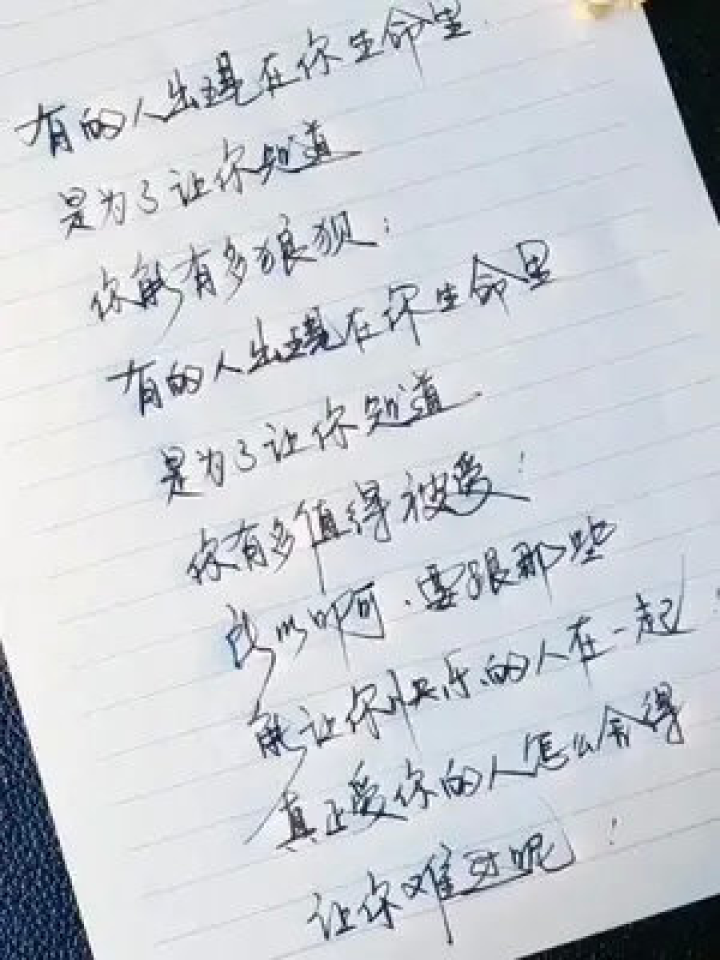 有的人出现在你生命里.
是为了让你知道
你能有多狼狈;
有的人出现在你生命里
是为了让你知道.
你有多值得被爱!
所以啊.要跟那些
能让你快乐的人在一起!
真正爱你的人怎么舍得
让你难过呢!